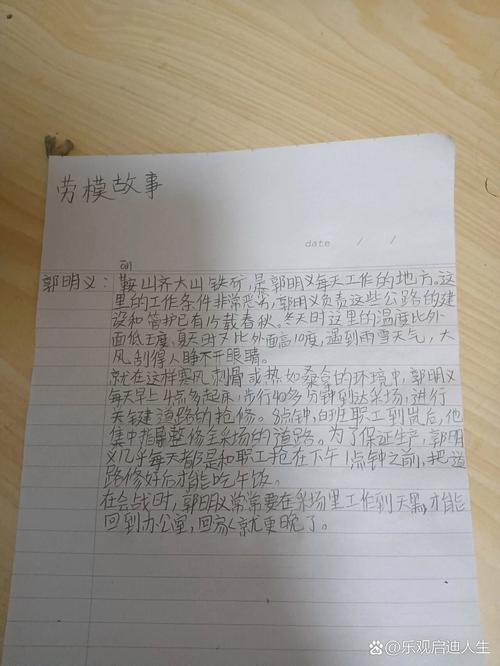 劳模故事
date / /
郭明义：鞍山齐大山铁矿，是郭明义每天工作的地方。这
里的工作条件非常恶劣，郭明义负责这些公路的建
设和管护已有15载春秋。冬天时这里的温度比外
面低五度，夏天时又比外面高10度，遇到雨雪天气，大
风刮得人睁不开眼睛。
就在这样寒风刺骨或热如桑拿的环境中，郭明义
每天早上4点多起床，步行40多分钟到达采场，进行
关键道路的抢修。8点钟，白班职工到岗后，他
集中指导整修全采场的道路。为了保证生产，郭明
义几乎每天都是和职工抢在下午1点钟之前，把道
路修好后才能吃午饭。
在会战时，郭明义常常要在采场里工作到天黑，才能
回到办公室，回家就更晚了。
@乐观启迪人生